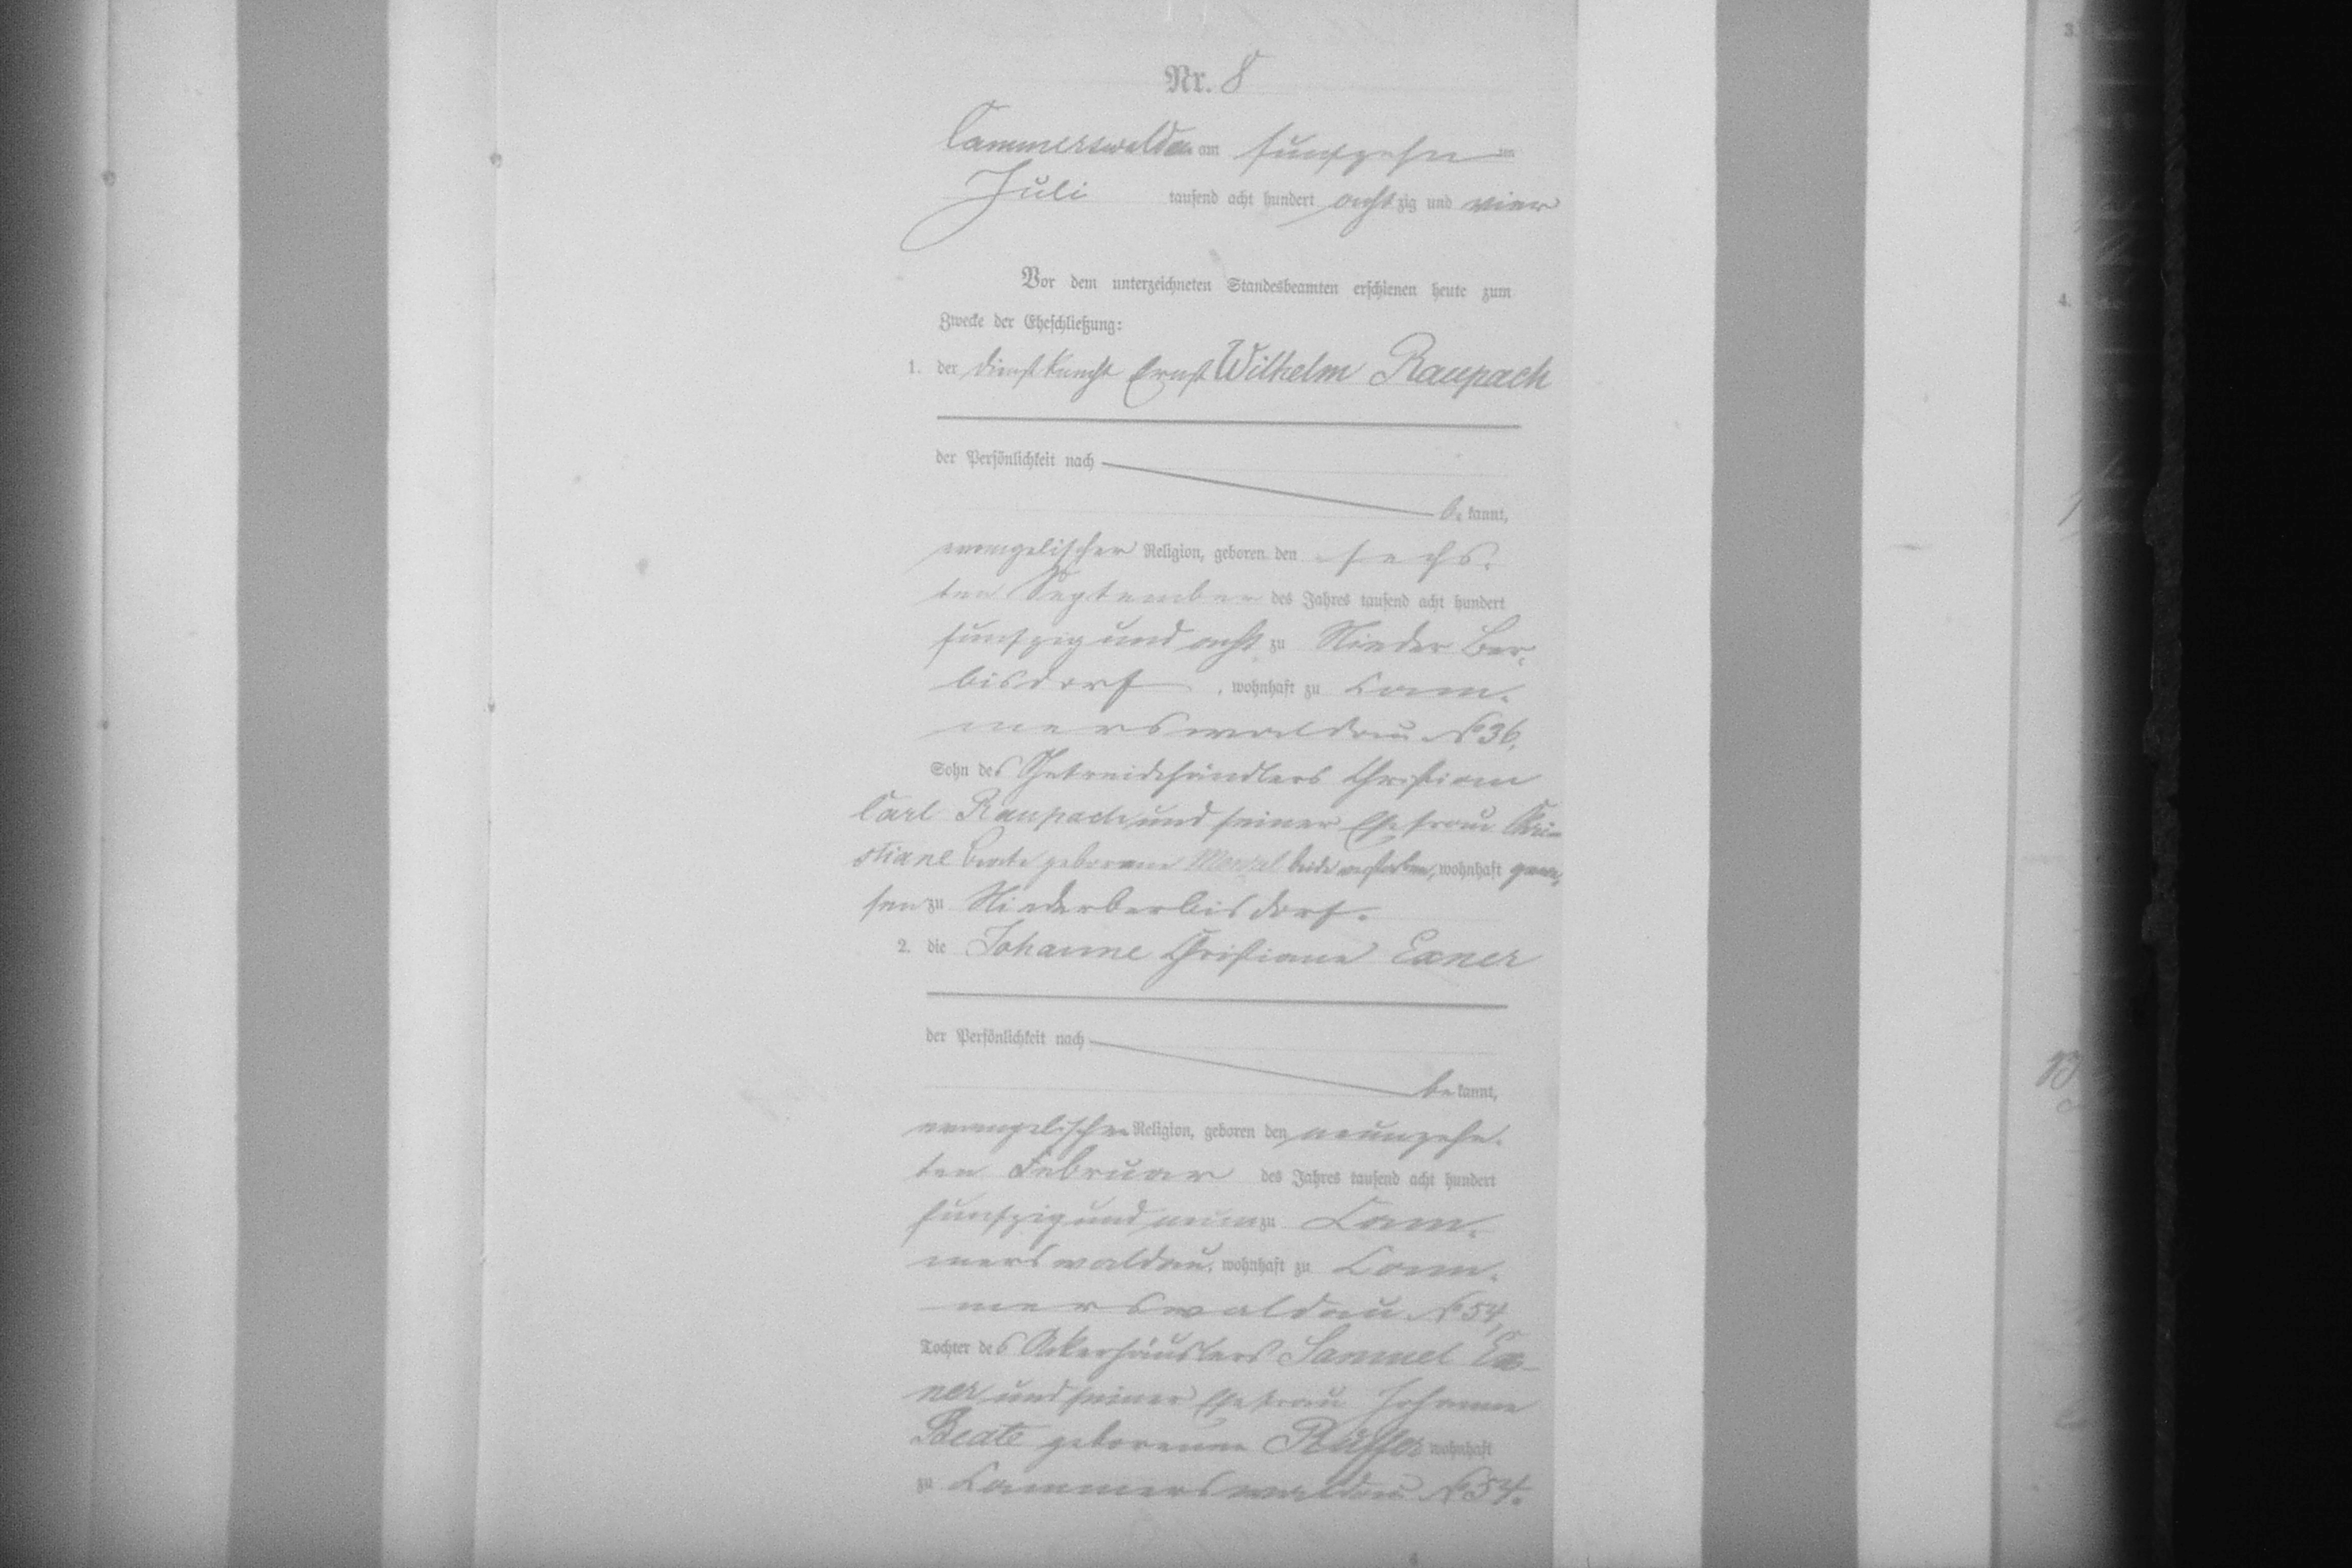 Nr. 8
Cammerswaldau am fünfzehn ten
Juli tausend acht hundert achtzig und vier
Vor dem unterzeichneten Standesbeamten erschienen heute zum
Zwecke der Eheschließung:
1. der Dienstknecht Ernst Wilhelm Raupach
der Persönlichkeit nach
be kannt,
evangelischer Religion, geboren den sechs-
ten September des Jahres tausend acht hundert
fünfzig und acht zu Nieder Ber-
bisdorf, wohnhaft zu Cam-
merswaldau No 36,
Sohn des Getreidehändlers Christian
Carl Raupach und seiner Ehefrau Chri-
stiane Beate geborene Menzel beide verstorben, wohnhaft gewe-
sen zu Niederberbisdorf.
2. die Johanne Christiane Exner
der Persönlichkeit nach
be kannt,
evangelischer Religion, geboren den neunzehn-
ten Februar des Jahres tausend acht hundert
fünfzig und neun zu Cam-
merswaldau, wohnhaft zu Cam-
merswaldau No 54,
Tochter des Ackerhäuslers Samuel Ex-
ner und seiner Ehefrau Johanne
Beate geborenen Rüffer wohnhaft
zu Cammerswaldau No 54.
3.
4.